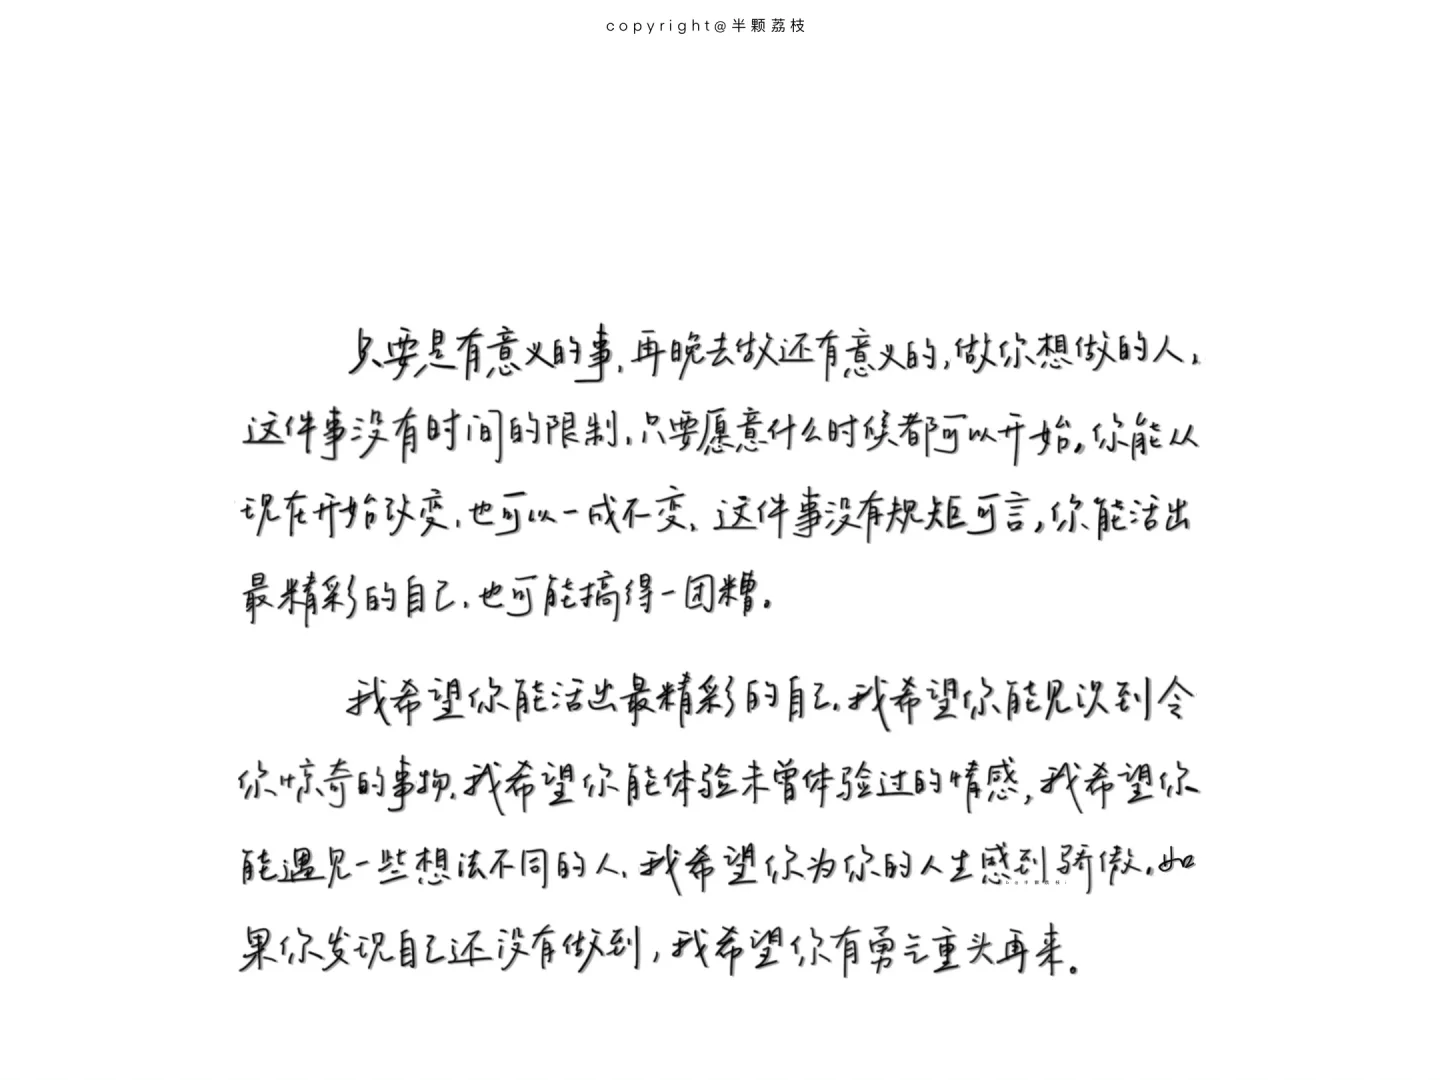 copyright@半颗荔枝
只要是有意义的事,再晚去做还有意义的,做你想做的人,
这件事没有时间的限制,只要愿意什么时候都可以开始。你能从
现在开始改变,也可以一成不变,这件事没有规矩可言,你能活出
最精彩的自己,也可能搞得一团糟。
我希望你能活出最精彩的自己,我希望你能见识到令
你惊奇的事物,我希望你能体验未曾体验过的情感,我希望你
能遇见一些想法不同的人,我希望你为你的人生感到骄傲。如
果你发现自己还没有做到,我希望你有勇气重头再来。